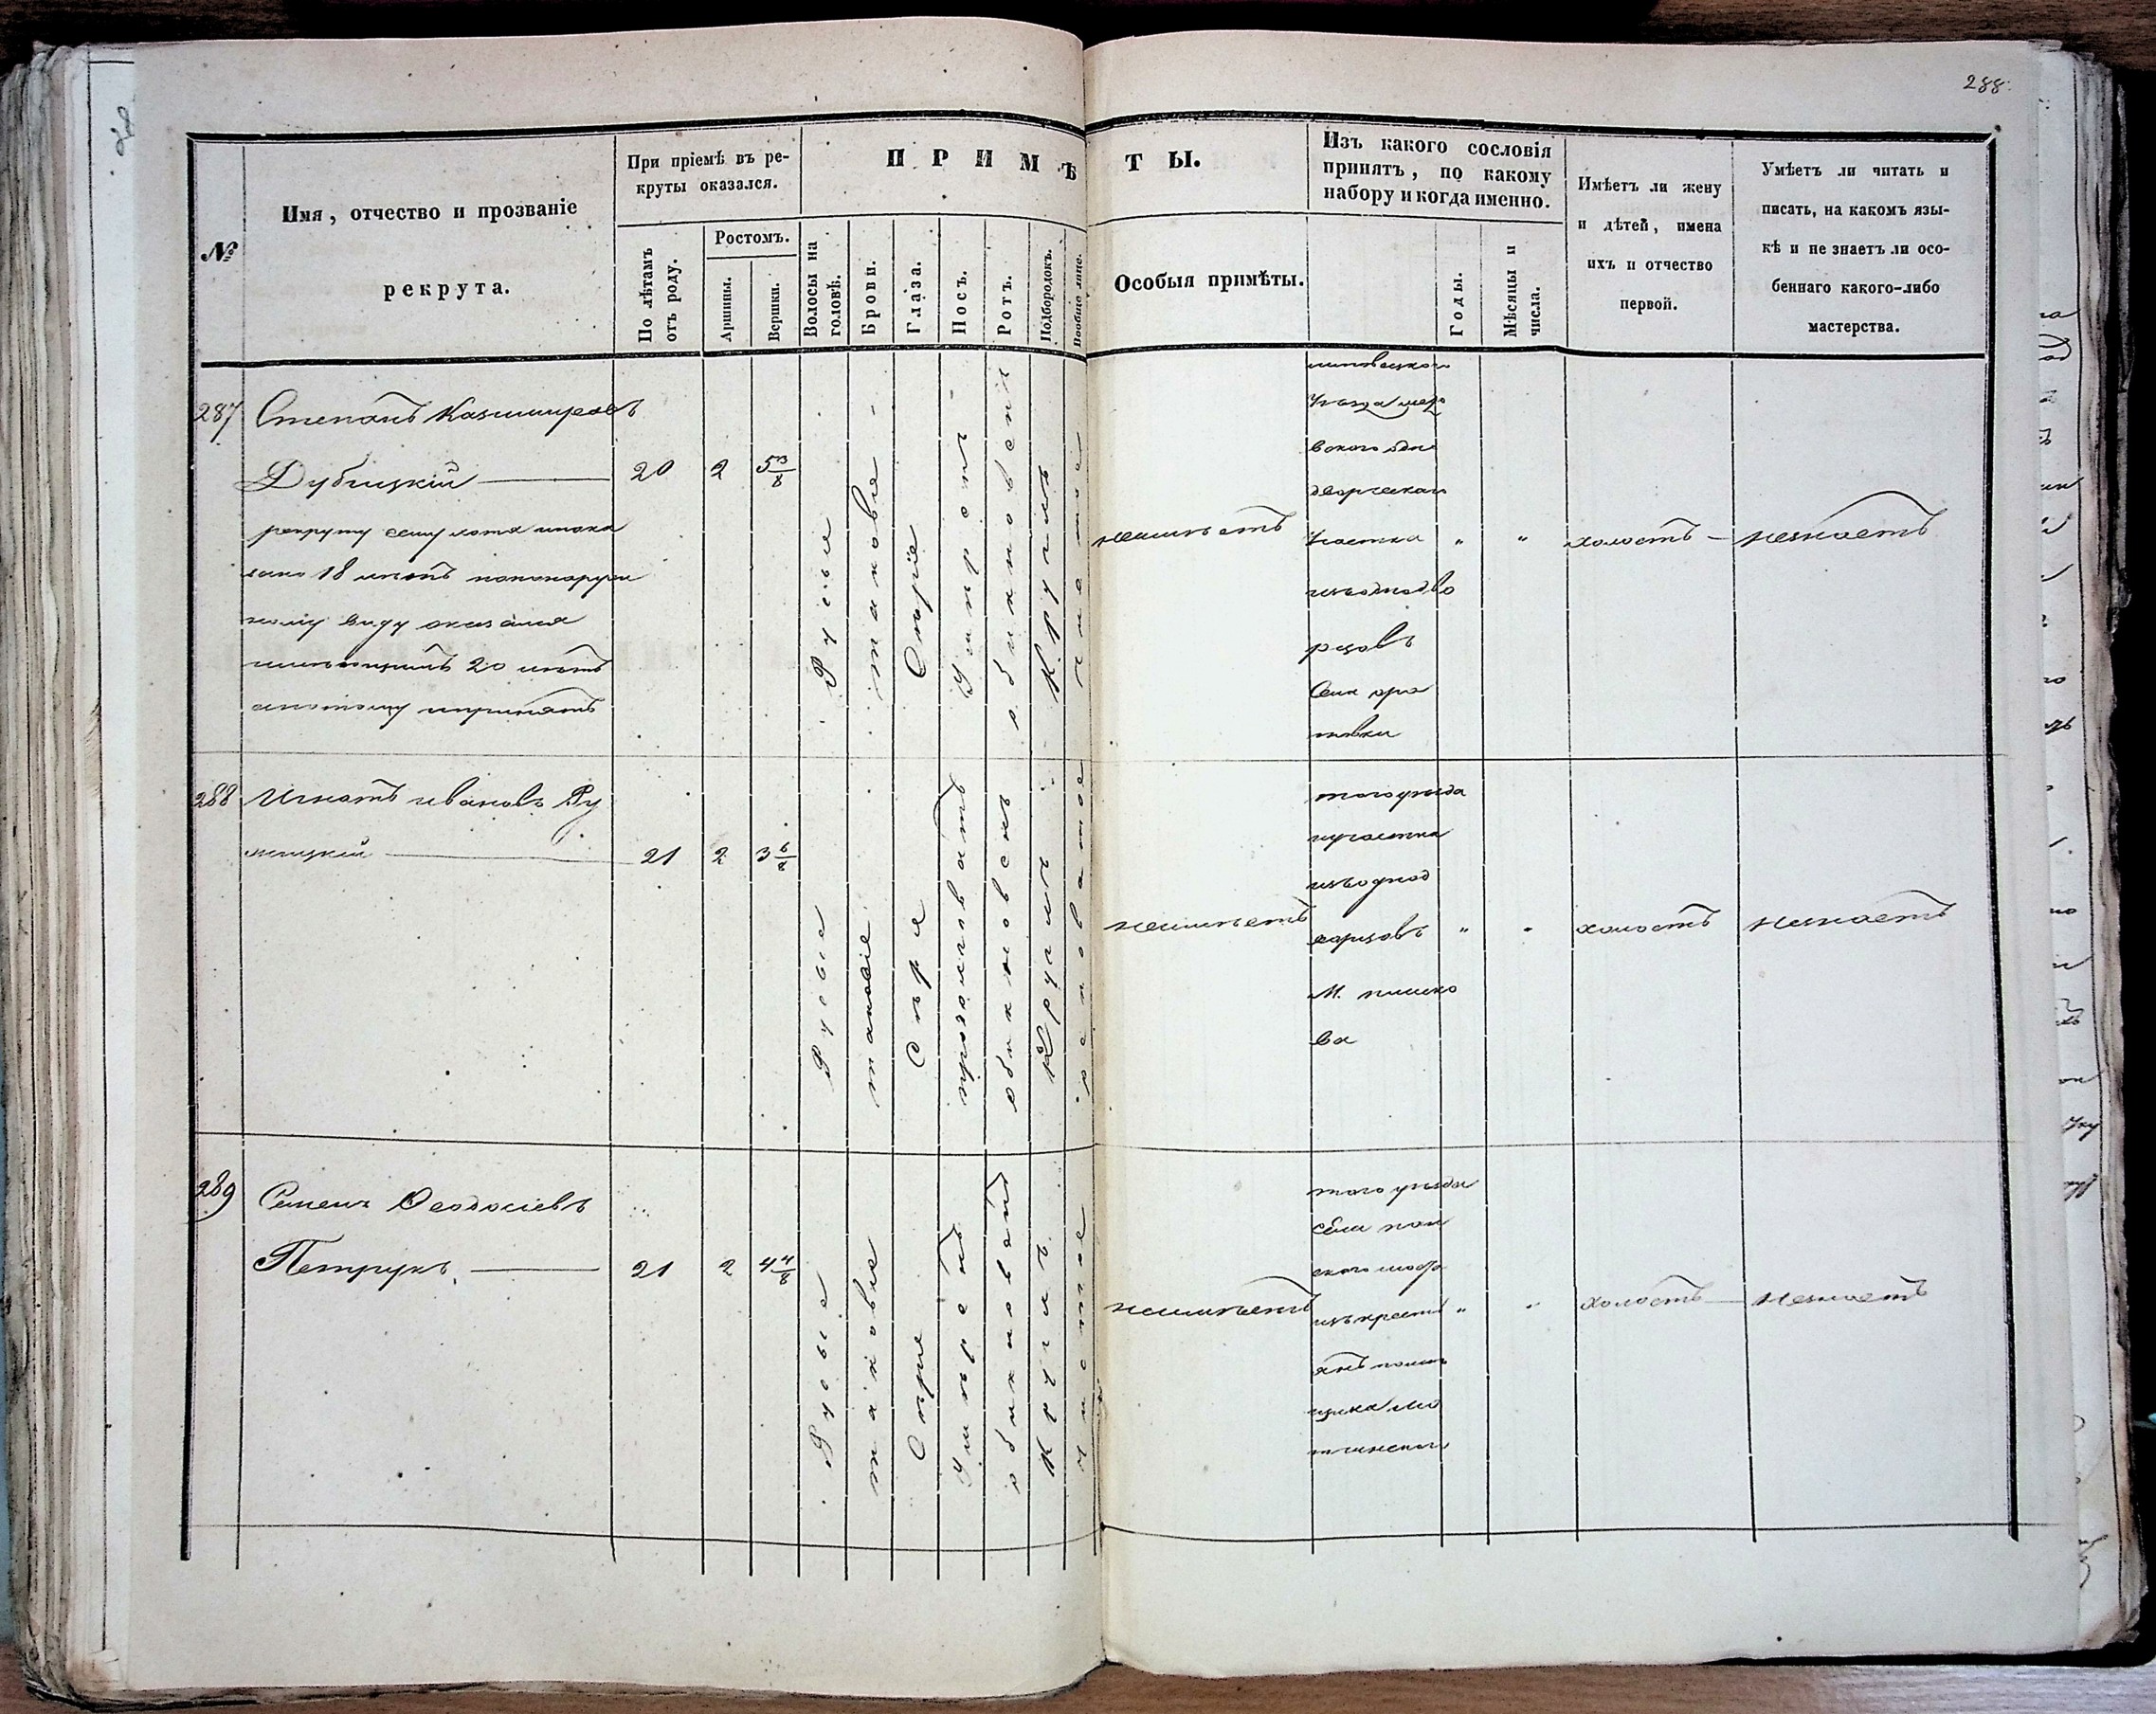 288
№
Имя, отчество и прозваніе
рекрута.
При пріемѣ въ ре-
круты оказался.
По лѣтамъ
отъ роду.
Ростомъ.
Аршины.
Вершки.
ПРИМѢТЫ.
Волосы на
головѣ.
Брови.
Глаза.
Носъ.
Ротъ.
Подбородокъ.
Вообще лице.
Особыя примѣты.
Изъ какого сословія
принятъ, по какому
набору и когда именно.
Годы.
Мѣсяцы и
числа.
Имѣетъ ли жену
и дѣтей, имена
ихъ и отчество
первой.
Умѣетъ ли читать и
писать, на какомъ язы-
кѣ и не знаетъ ли осо-
беннаго какого-либо
мастерства.
287
Степанъ Казимировъ
Дубицкій
рекруту сему хотя показа
но 18 лѣтъ но по наруж
ному виду оказался
имѣющимъ 20 лѣтъ
а потому и принятъ
20
2
5 3/8
Русые
таковые
Сѣрые
Умѣрен
обикновен
Круглъ
чистое
неимѣетъ
уѣзда
дворческаго
участка
изъ однодво
рцовъ
"
"
холостъ
незнаетъ
288
Игнатъ Ивановъ Ру
жицкій
21
2
3 6/8
Русые
таковые
Сѣрые
продолговатъ
обикновен
Круглъ
неимѣетъ
того уѣзда
иучастка
изъ однод
ворцовъ
"
"
холостъ
незнаетъ
289
Семенъ Ѳеодосіевъ
Петрукъ
21
2
4 4/8
Русые
таковые
Сѣрые
Умѣрен
обикновен
Круглъ
чистое
неимѣетъ
того уѣзда
изъ крестъ
янъ помѣ
щика
"
"
холостъ
незнаетъ